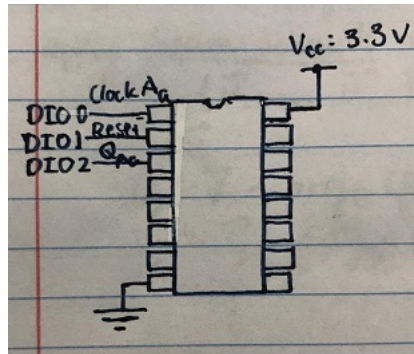 Vcc: 3.3V
Clock Aa
DIO0
Reset
DIO1
Qpa
DIO2